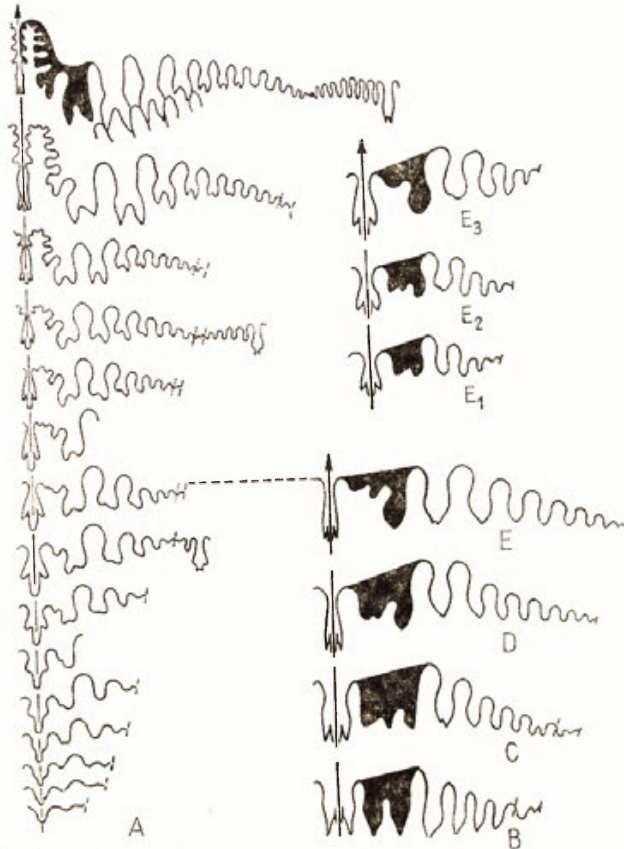 E3
E2
E1
E
D
C
A
B